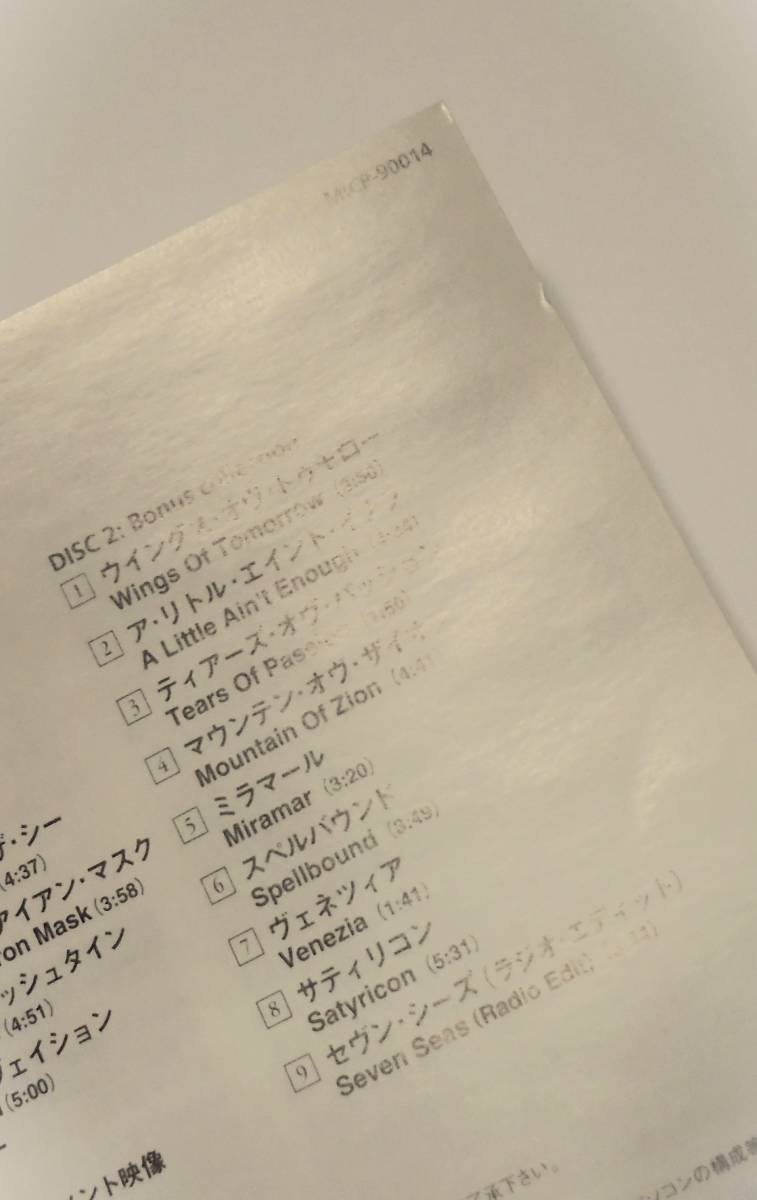 90014
DISC 2: Bonus
1 ウイングス・オヴ・トゥモロー
Wings Of Tomorrow (3:50)
2 ア・リトル・エイント・イナフ
A Little Ain't Enough
3 ティアーズ・オヴ・パッション
Tears Of Passion
4 マウンテン・オヴ・ザイオ
Mountain Of Zion
5 ミラマール
Miramar (3:20)
6 スペルバウンド
Spellbound (3:49)
7 ヴェネツィア
Venezia (1:41)
8 サティリコン
Satyricon (5:31)
9 セヴン・シーズ (ラジオ・エディット)
Seven Seas (Radio Edit)
ザ・シー
(4:37)
アイアン・マスク
ron Mask (3:58)
ッシュタイン
(4:51)
ヴェイション
(5:00)
ント映像
了承下さい。
ソコンの構成